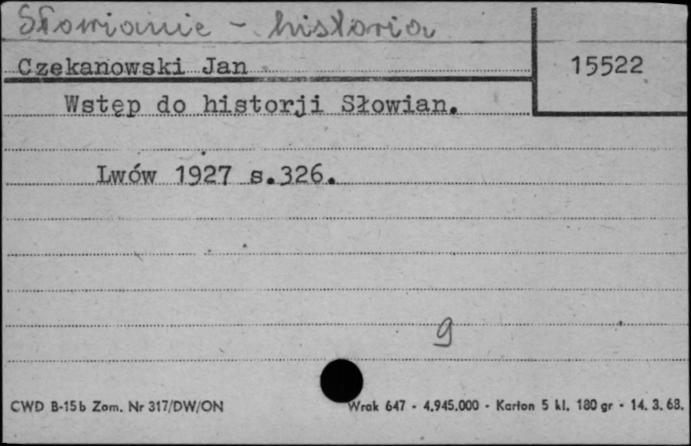 Słowianie - historia
Czekanowski Jan
15522
Wstęp do historji Słowian.
Lwów 1927 s.326.
9
CWD B-15b Zam. Nr 317/DW/ON
Wrak 647 - 4.945.000 - Karton 5 kl. 180 gr - 14. 3. 68.